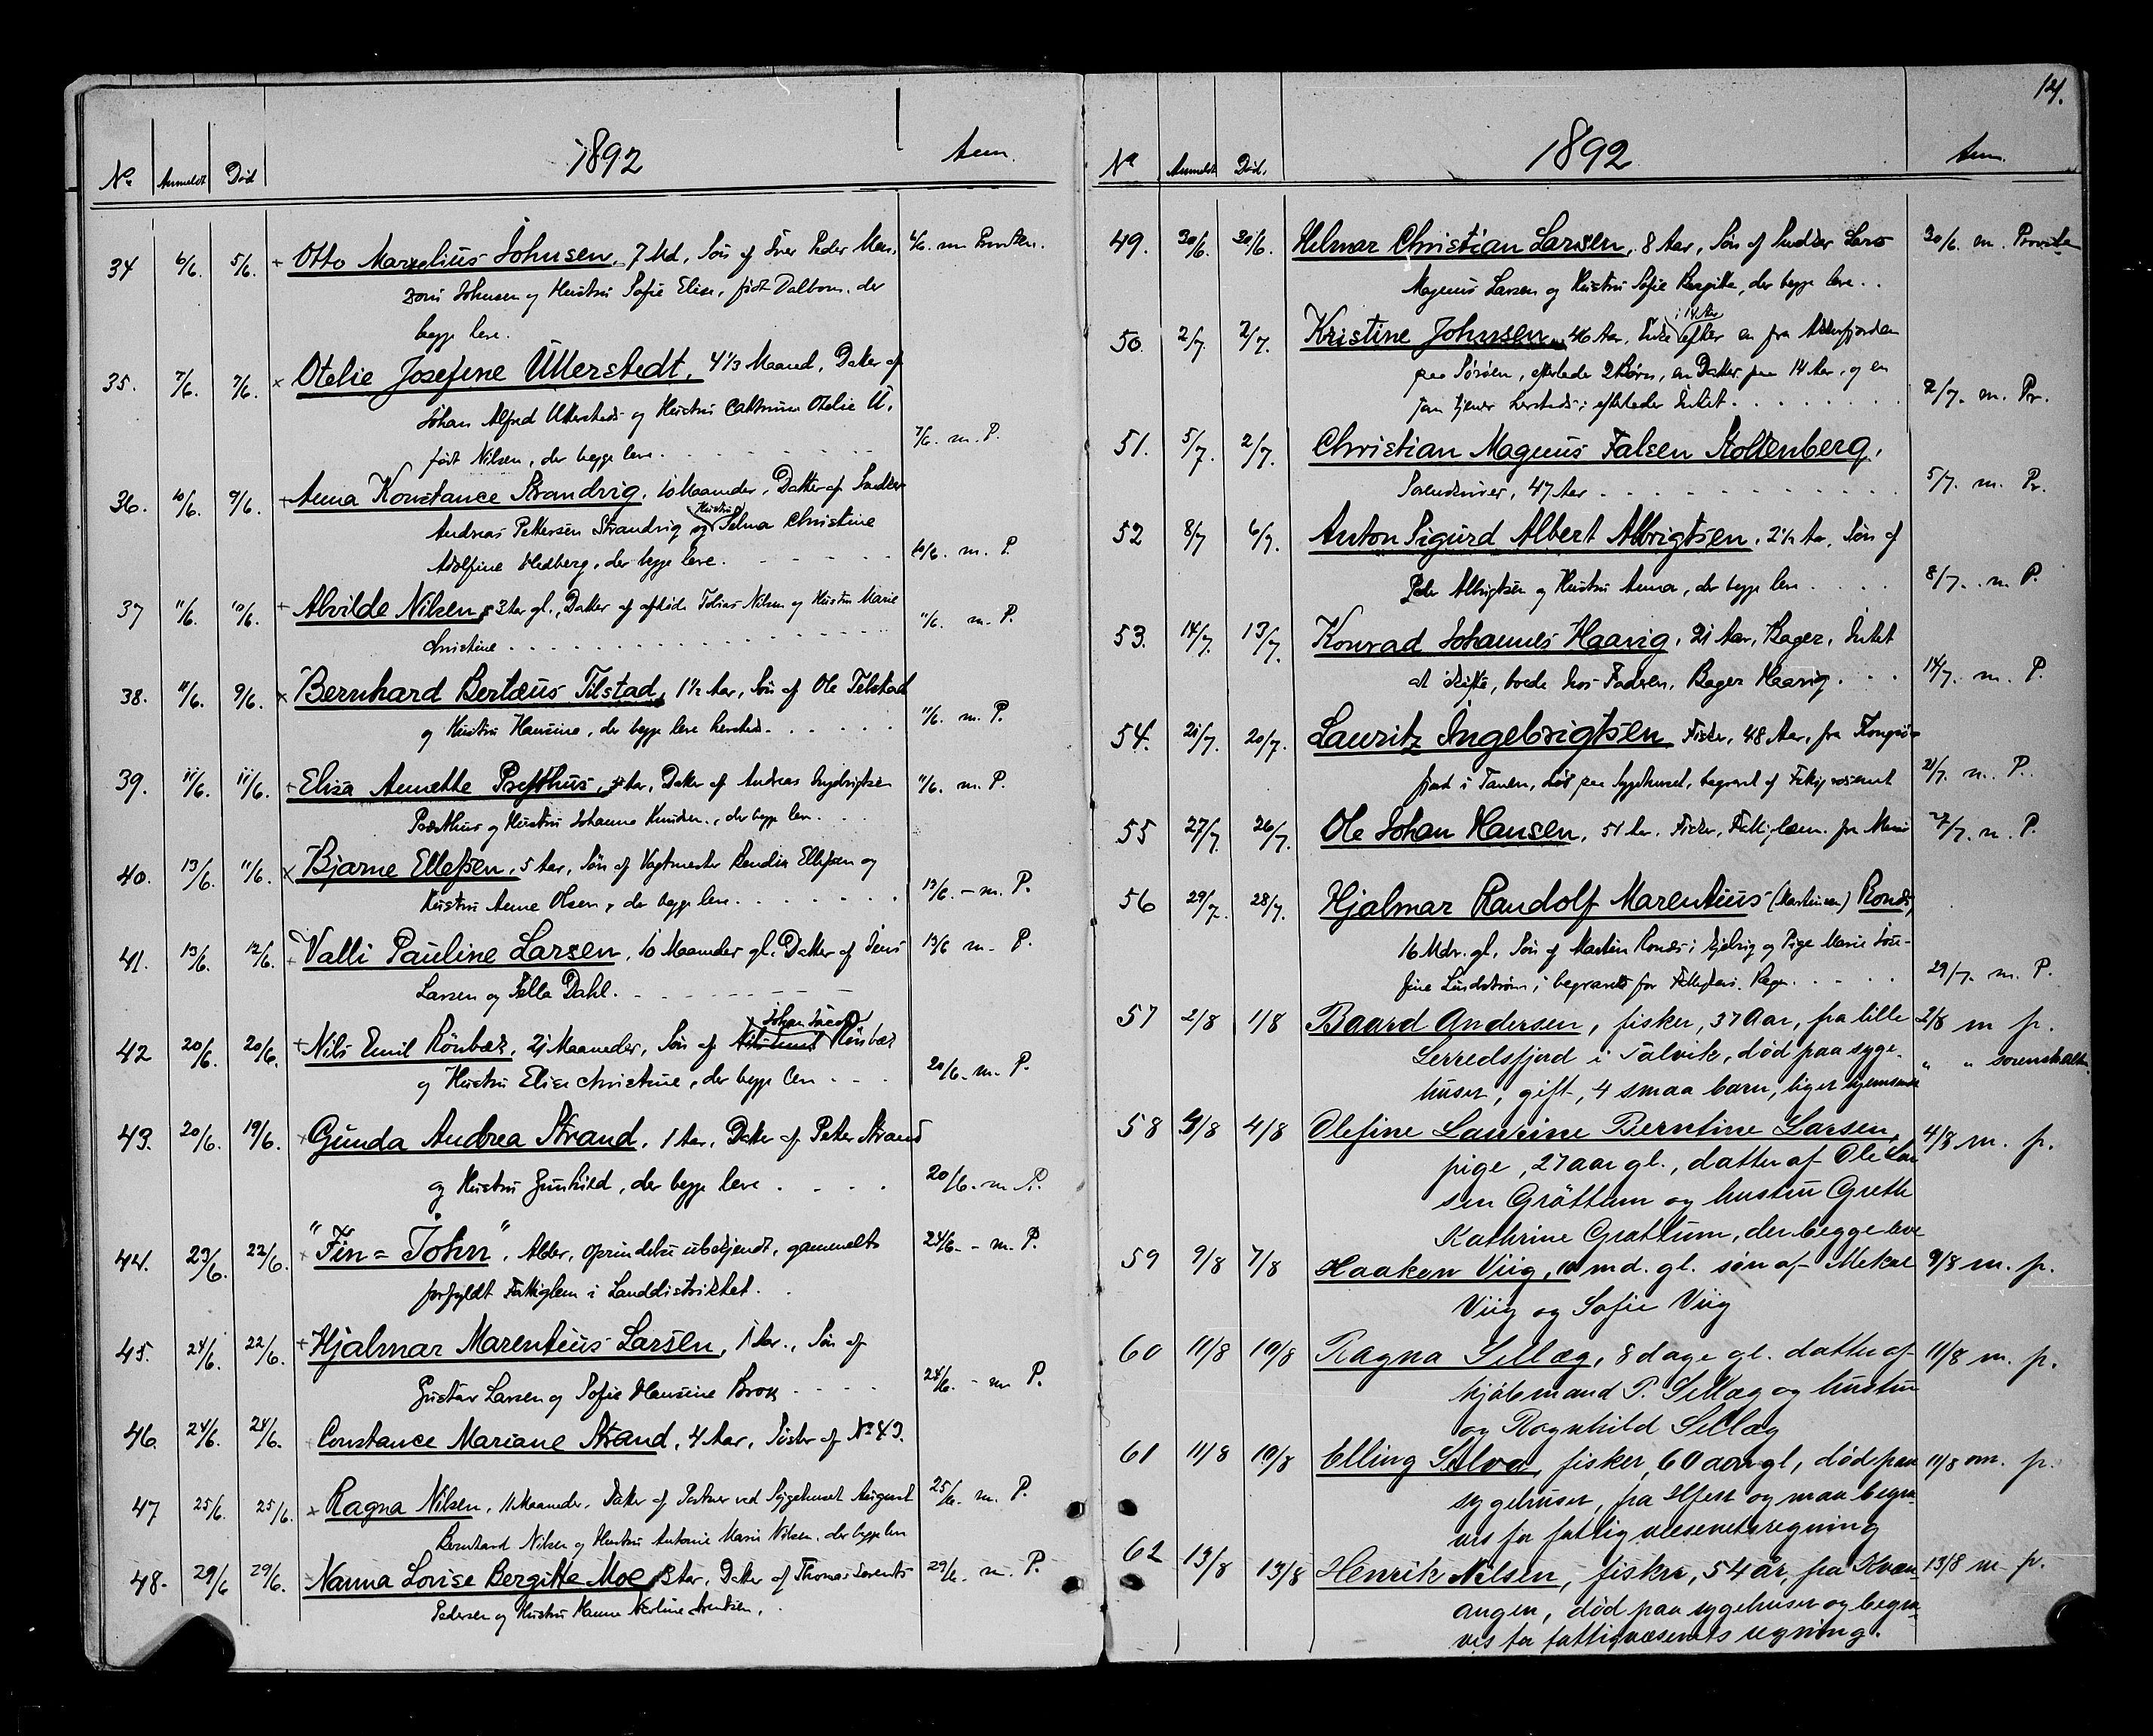 1892
Anm.
No Anmeldt Død
34 6/6. 5/6. + Otto Marselius Johnsen, 7 Md, Søn af Iver Peder Mon- 6/6. m
Johnsen og Hustru Sofie Elise, født Dalbom. der
begge leve.
35. 7/6. 7/6. x Otelie Josefine Ullerstedt, 4 1/3 Maaned, Datter af
Johan Alfred Ullerstedt og Hustru Cathrine Otelie U.
født Nilsen, der begge leve. 7/6. m. P.
36. 10/6. 9/6. + Anna Konstance Strandvig, 10 Maaneder, Datter af Snedker
Andreas Pettersen Strandvig og Hustru Selma Christine
Adolfine Hedberg, der begge leve. 10/6. m. P.
37 11/6. 10/6. + Alvilde Nilsen, 3 Aar gl., Datter af afdøde Tobias Nilsen og Hustru Marie
Christine 11/6. m. P.
38. 11/6. 9/6. x Bernhard Bertæus Tilstad, 1 1/2 Aar, Søn af Ole Tilstad
og Hustru Hansine, der begge leve hersteds. 11/6. m. P.
39. 11/6. 11/6. + Elisa Annette Præsthus, Aar, Datter af Andreas Ingebrigtsen 11/6. m. P.
Præsthus og Hustru Johanna Knudsen, der begge leve.
40. 13/6. 11/6. x Bjarne Ellefsen, 5 Aar, Søn af Vagtmester Ellefsen og
Hustru Anne Olsen, der begge leve. 13/6. - m. P.
41. 13/6. 12/6. + Valli Pauline Larsen, 10 Maaneder gl. Datter af Jens 13/6 m. P.
Larsen og Dahl.
42 20/6. 20/6. + Nils Emil Rönbæk, 21 Maaneder, Søn af Johan Jacob Rönbæk
og Hustru Elise Christine, der begge leve 20/6. m. P.
43. 20/6. 19/6. + Gunda Andrea Strand, 1 Aar, Datter af Peter Strand
og Hustru Gunhild, der begge leve 20/6. m. P.
44. 23/6. 22/6. + "Fin-John", Alder, Oprindelse ubekjendt, gammelt 24/6. - m. P.
forfyldt Fattiglem i Landdistriktet.
45. 24/6. 22/6. + Hjalmar Marentius Larsen, 1 Aar., Søn af
Gustav Larsen og Sofie Hansine Brox 24/6. - m P.
46. 24/6. 24/6. Constance Mariane Strand, 4 Aar, Søster af No 43.
47 25/6. 25/6. x Ragna Nilsen, 11 Maaneder, Datter af Portner ved Sygehuset August 25/6. m. P.
Bernhard Nilsen og Hustru Antonie Marie Nilsen, der begge leve
48. 29/6 29/6. Nanna Lovise Bergitte Moe, 3 Aar, Datter af Thomas Lorents 29/6. m. P.
Pedersen og Hustru Hanna Nicoline Arntsen.
121.
1892
Anm.
No Anmeldt Død.
49. 30/6. 30/6. Helmar Christian Larsen, 8 Aar, Søn af Snedker Lars 30/6. m. Private
Magnus Larsen og Hustru Sofie Bergitte, der begge leve.
50. 2/7. 2/7. Kristine Johnsen, 46 Aar, Enke i 14 Aar efter en fra
paa Sørøen, efterlader 2 Børn, en Datter paa 14 Aar, og en
som tjener hersteds; efterlader Intet. 2/7. m. Pr.
51. 5/7. 2/7. Christian Magnus Falsen Stoltenberg,
Sorenskriver, 47 Aar 5/7. m. Pr.
52 8/7 6/7. Anton Sigurd Albert Albrigtsen, 2 1/2 Aar, Søn af
Peder Albrigtsen og Hustru Anna, der begge leve 8/7. m P.
53. 14/7. 13/7. Konrad Johannes Haavig, 21 Aar, Bager, Intet
at skifte, boede hos Faderen, Bager Haavig. 14/7. m. P.
54. 21/7. 20/7. Lauritz Ingebrigtsen, Fisker, 48 Aar, fra Kongsø-
fjord i Tanen, død paa Sygehuset, begravet af Fattigvæsenet 21/7. m. P.
55 27/7. 26/7. Ole Johan Hansen, 51 Aar, Fisker, Fattiglem. fra 27/7. m. P.
56 29/7. 28/7. Hjalmar Randolf Marentius (Martinsen) Ronds,
16 Mdr. gl. Søn af Martin Ronds i og Pige Marie Jose-
fine Lindstrøm; begraves for Fattigvæs. Regn. 29/7. m. P.
57 2/8 1/8 Baard Andersen, fisker, 37 Aar, fra lille 2/8 m p.
Lerredsfjord i Talvik, død paa syge- " " sorenskriver
huset, gift, 4 smaa barn, liget hjemsendt
58 4/8 4/8 Olefine Laurine Berntine Larsen, 4/8 m. p.
pige, 27 aar gl., datter af Ole Lar-
sen Gröttum og hustru Grethe
Kathrine Grøttum, der begge leve
59 9/8 7/8 Haakon Viig, 10 md. gl. søn af Mekal 9/8 m. p.
Viig og Sofie Viig
60 11/8 10/8 Ragna Sellæg, 8 dage gl. datter af 11/8 m. p.
kjøbmand P. Sellæg og hustru
og Ragnhild Sellæg
61 11/8 10/8 Elling Selva, fisker, 60 aar gl, død paa 11/8 m. p.
sygehuset, fra og maa begra-
ves for fattigvæsenets regning
62 13/8 13/8 Henrik Nilsen, fisker, 54 år, fra Kvæn- 13/8 m p.
angen, død paa sygehuset og begra-
ves for fattigvæsenets regning.